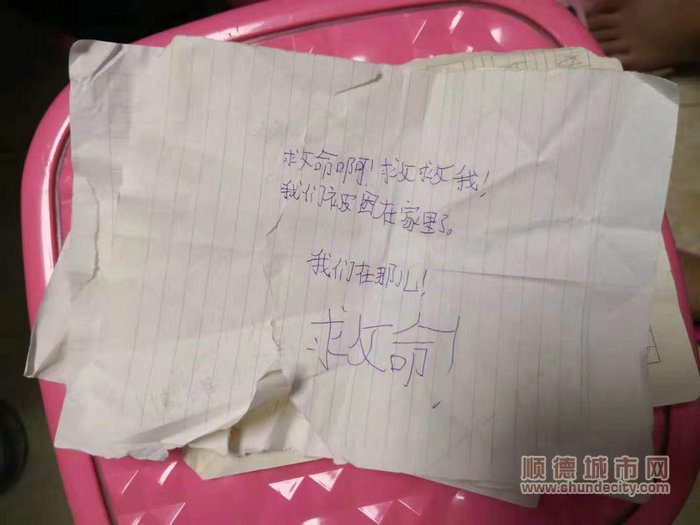 求救命啊！救救我！
我们被困在家里了。
我们在那儿！
救命！
顺德城市网
www.shundecity.com